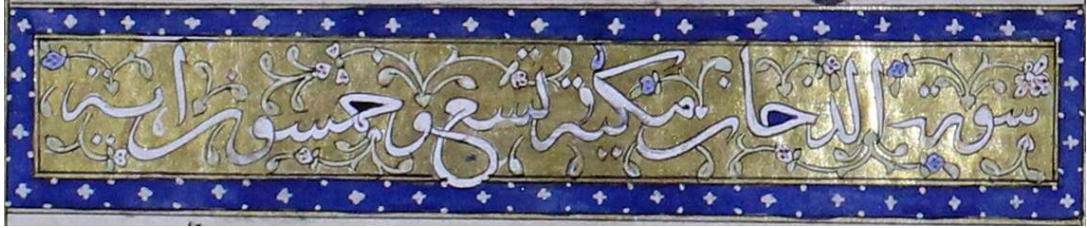 سورة الدخان مكية تسع وخمسون اية